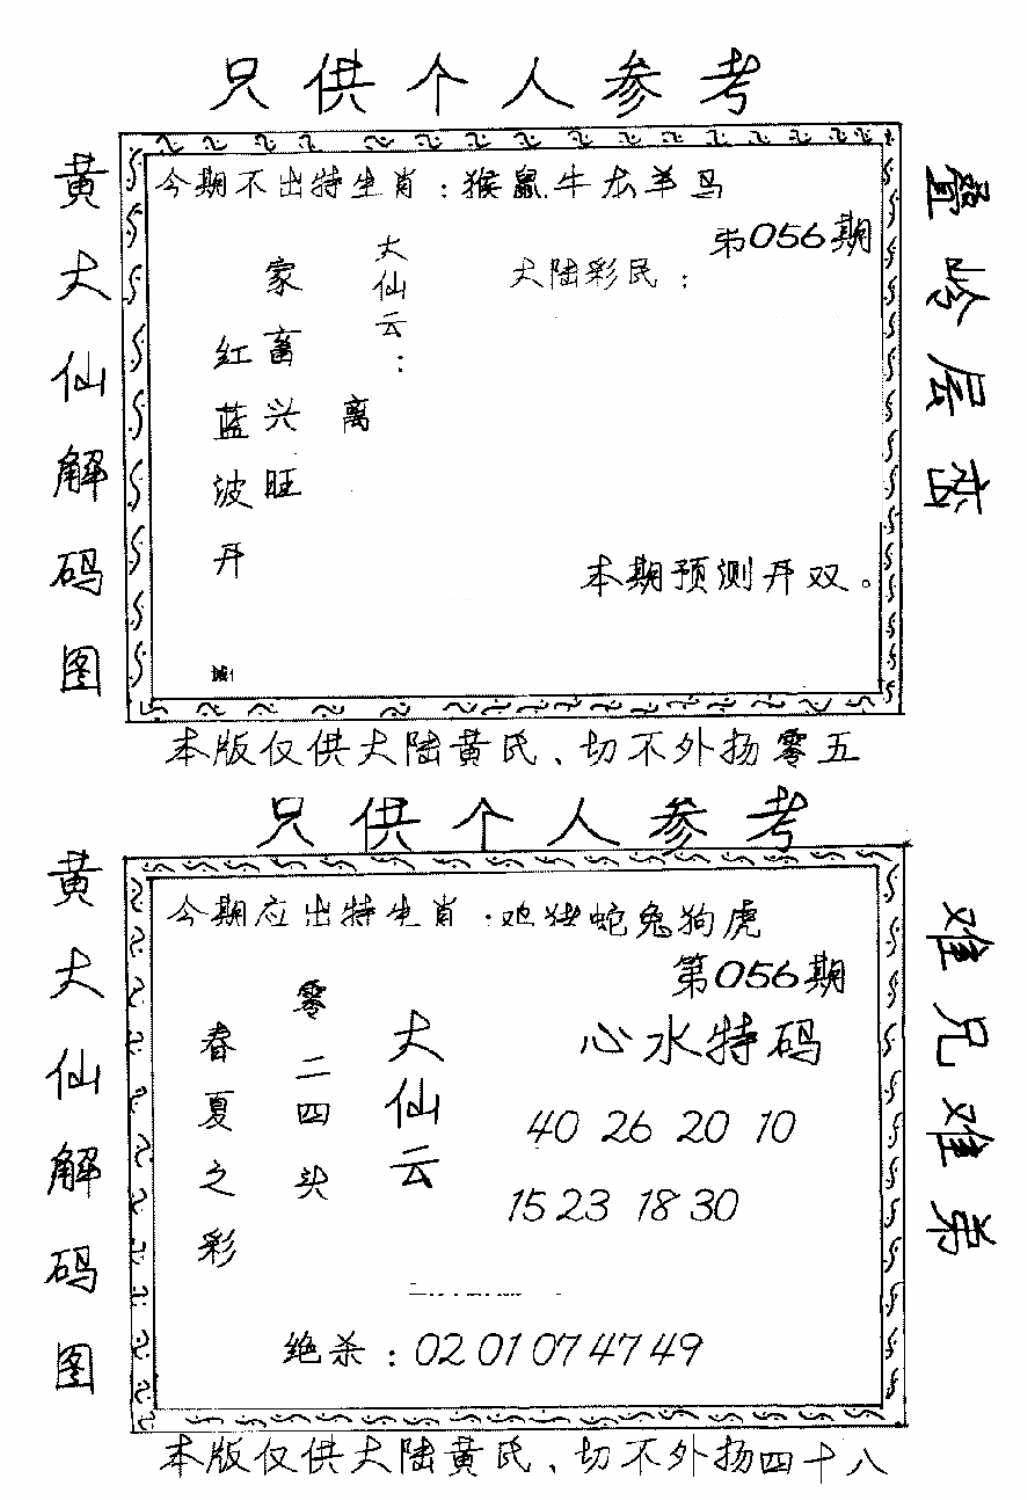 只供个人参考
黄大仙解码图
今期不出特生肖：猴鼠牛龙羊马
第056期
大陆彩民：
大仙云：
离
家畜兴旺
红蓝波开
本期预测开双。
叠岭层峦
本版仅供大陆黄氏、切不外扬零五
只供个人参考
黄大仙解码图
今期应出特生肖：鸡猪蛇兔狗虎
第056期
心水特码
40 26 20 10
15 23 18 30
大仙云
零二四头
春夏之彩
绝杀：02 01 07 47 49
难兄难弟
本版仅供大陆黄氏、切不外扬四十八